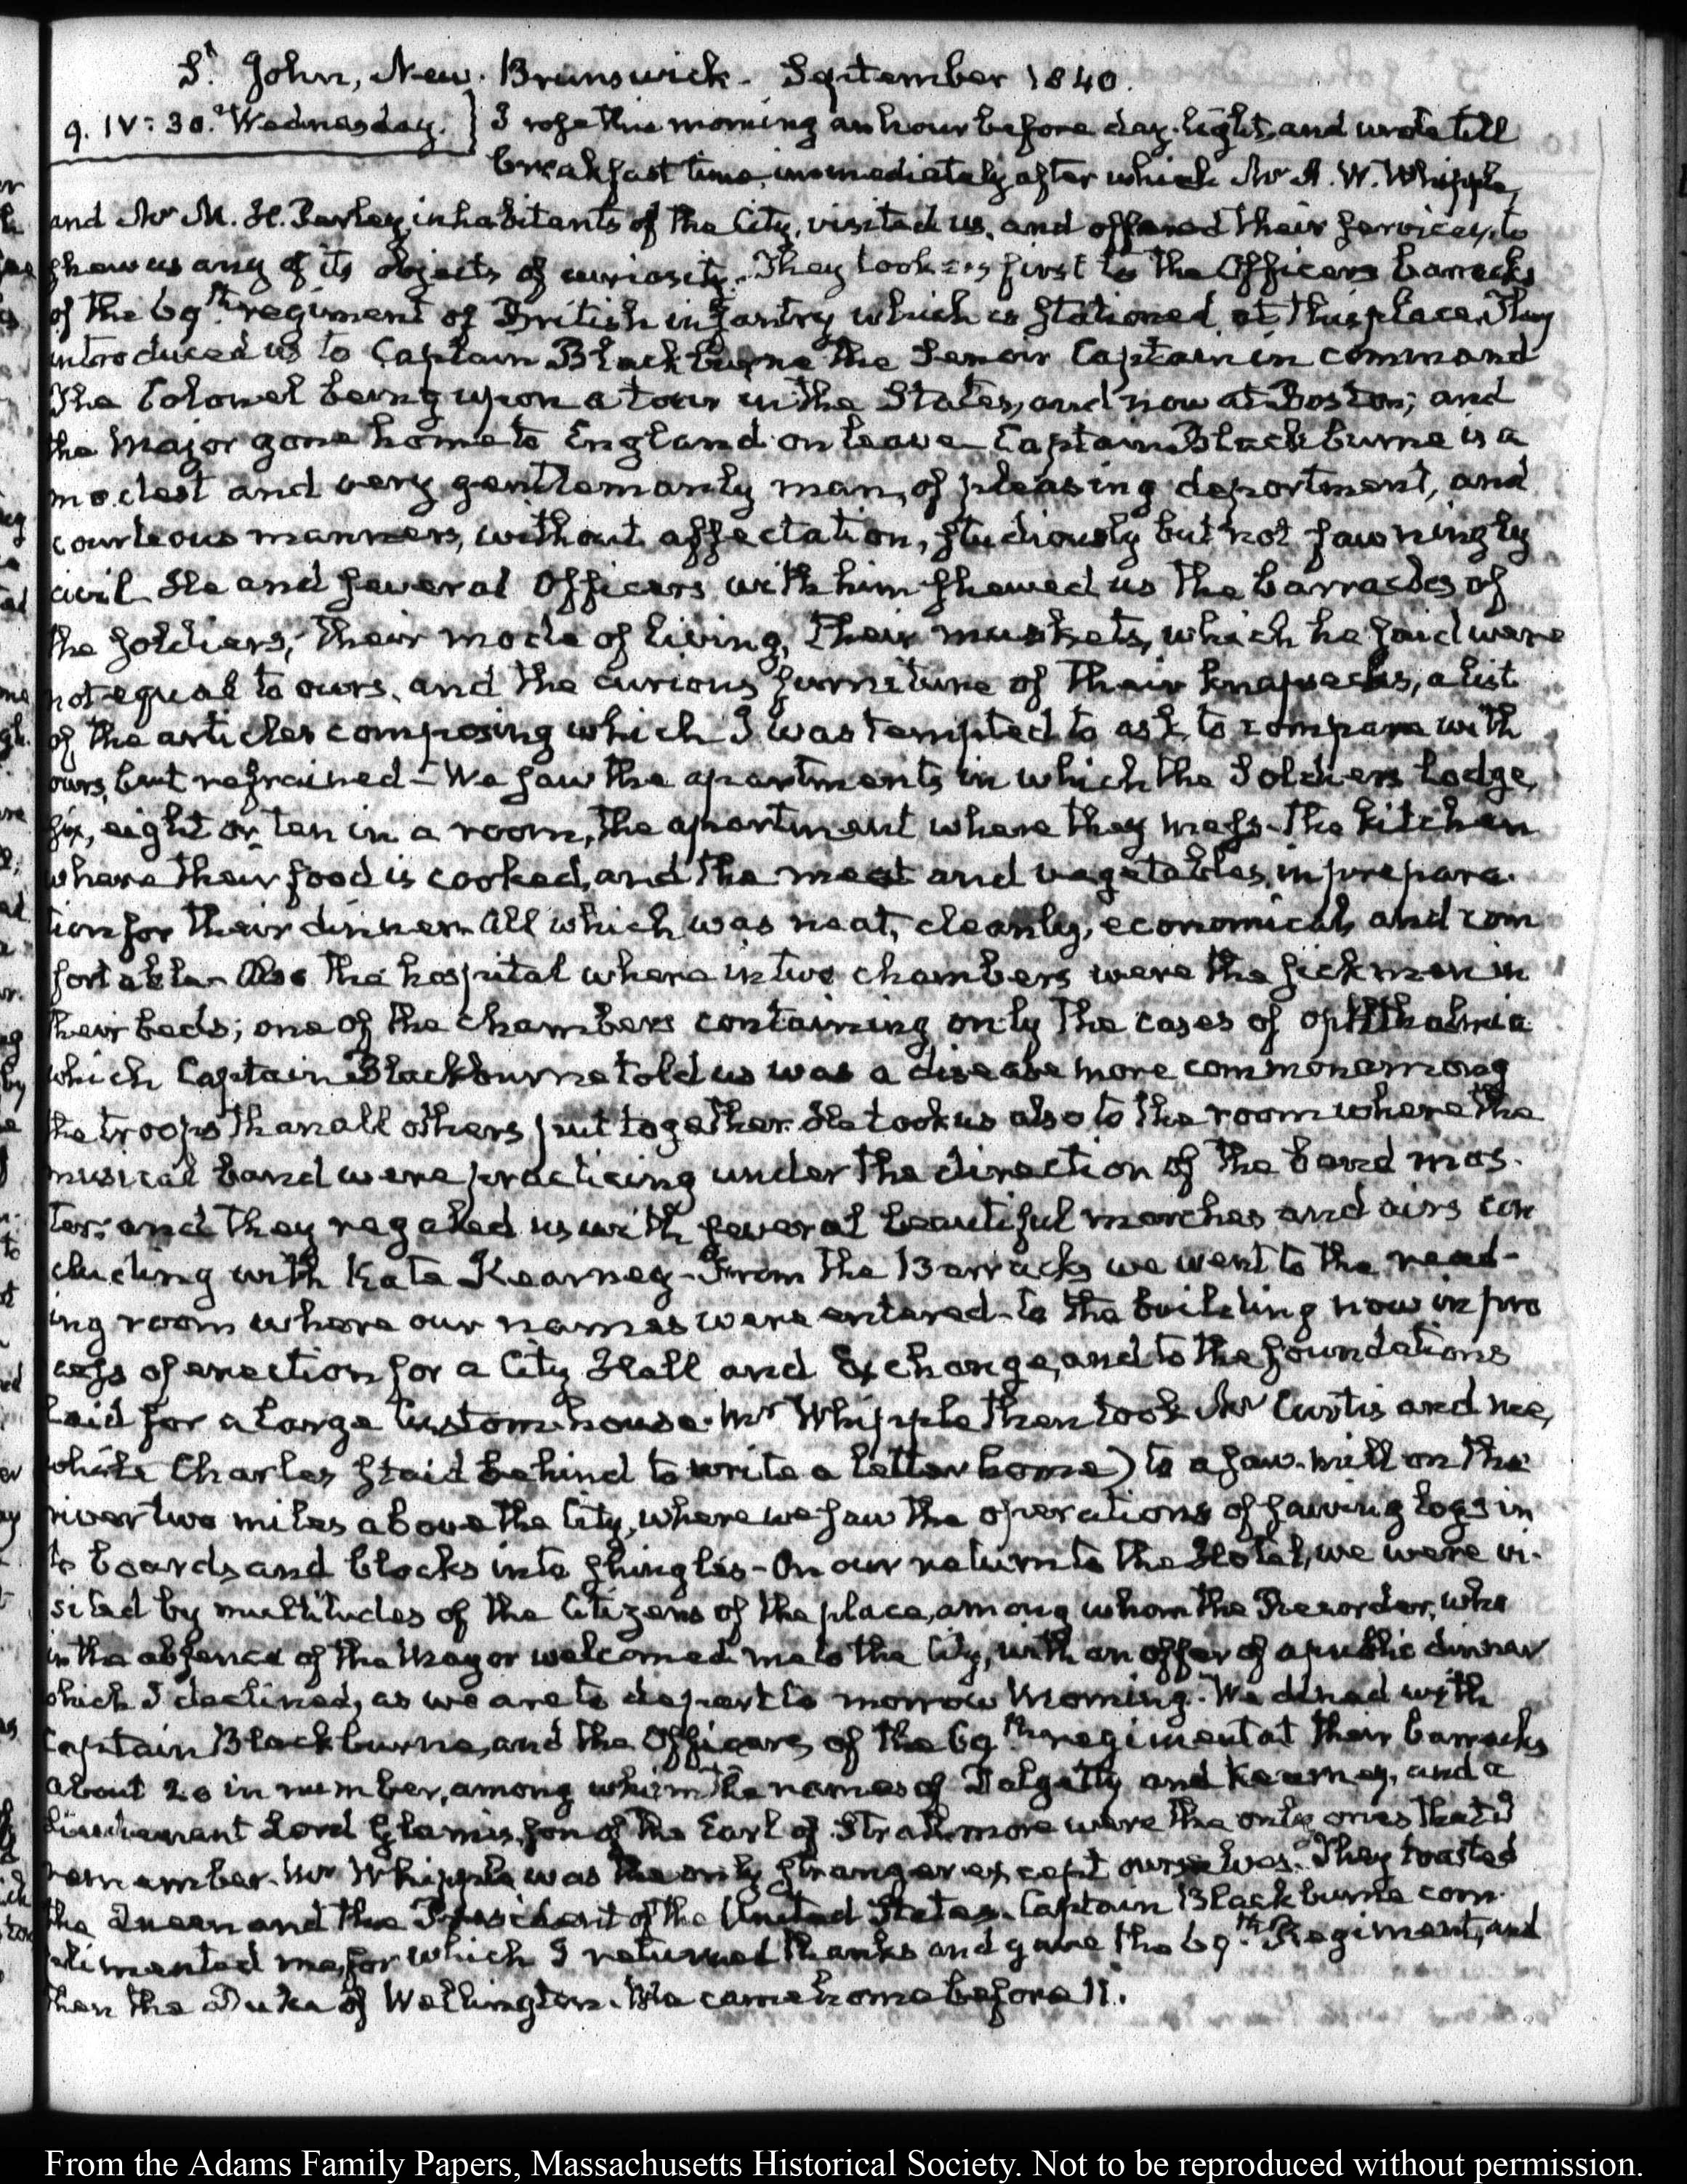 St. John, New Brunswick - September 1840.
9. IV: 30. Wednesday. } I rose this morning an hour before day-light, and wrote till
breakfast time, immediately after which Mr A. W. Whipple,
and Mr M. H. Perley, inhabitants of the City, visited us, and offered their services, to
shew us any of its objects of curiosity. They took us first to the Officers barracks
of the 69th. regiment of British infantry which is stationed at this place. They
introduced us to Captain Blackburne the Senior Captain in command
The Colonel being upon a tour in the States, and now at Boston; and
the Major gone home to England on leave - Captain Blackburne is a
modest and very gentlemanly man, of pleasing deportment, and
courteous manners, without affectation, studiously but not fawningly
civil. He and several Officers with him shewed us the barracks of
the soldiers, their mode of living, their muskets, which he said were
not equal to ours, and the curious furniture of their knapsacks, a list
of the articles composing which I was tempted to ask, to compare with
ours, but refrained - We saw the apartments in which the Soldiers lodge,
six, eight or ten in a room, the apartment where they mess - the kitchen
where their food is cooked, and the meat and vegetables, in prepara-
tion for their dinner - All which was neat, cleanly, economical, and com
fortable - Also the hospital where in two chambers were the sick men in
their beds; one of the chambers containing only the cases of ophthalmia
which Captain Blackburne told us was a disease more common among
the troops than all others put together. He took us also to the room where the
musical band were practicing under the direction of the band mas-
ter; and they regaled us with several beautiful marches and airs con
cluding with Kate Kearney - From the Barracks we went to the read-
ing room where our names were entered - to the building now in pro
cess of erection for a City Hall and Exchange, and to the foundations
laid for a large Custom-house. Mr Whipple then took Mr Curtis and me,
while Charles staid behind to write a letter home) to a saw-mill on the
river two miles above the City, where we saw the operations of sawing logs in
to boards and blocks into shingles - On our return to the Hotel, we were vi-
sited by multitudes of the Citizens of the place, among whom the Recorder, who
in the absence of the Mayor welcomed me to the City, with an offer of a public dinner
which I declined, as we are to depart to morrow Morning. We dined with
Captain Blackburne, and the Officers of the 69th regiment at their barracks
about 20 in number, among whom the names of Dalgetty and Kearney, and a
Lieutenant Lord Glamis, son of the Earl of Strathmore were the only ones that I
remember. Mr Whipple was the only stranger except ourselves. They toasted
the Queen and the President of the United States. Captain Blackburne com-
plimented me, for which I returned thanks and gave the 69th. Regiment, and
then the Duke of Wellington. We came home before 11.
From the Adams Family Papers, Massachusetts Historical Society. Not to be reproduced without permission.